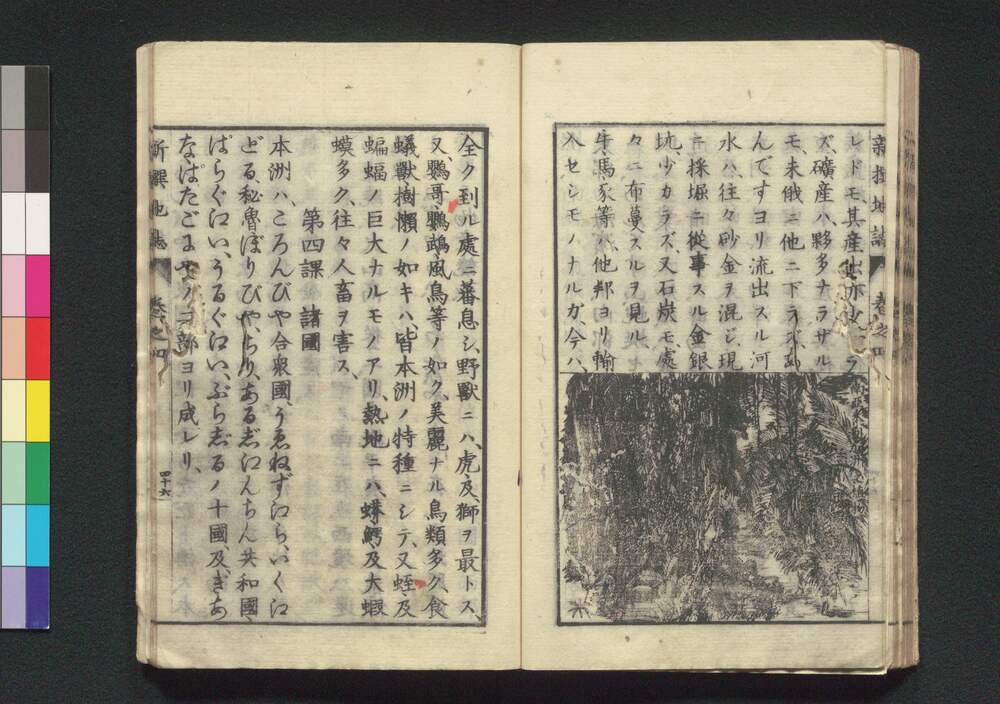 レドモ、其産出亦少
ズ、礦産ハ、夥多ナラザル
モ、未俄ニ他ニ下ラズ、
んですヨリ流出スル河
水ハ、往々砂金ヲ混ジ、現
ニ採堀ニ從事スル金銀
坑、少カラズ、又石炭モ、處
々ニ布蔓スルヲ見ル、
牛、馬、豕等ハ、他邦ヨリ輸
入セシモノナルガ、今ハ、
新撰地誌
卷之四
全ク到ル處ニ蕃息シ、野獸ニハ、虎、及、獅ヲ最トス、
又、鸚哥、鸚鵡、風鳥等ノ如ク、美麗ナル鳥類多ク、食
蟻獸、樹懶ノ如キハ、皆本洲ノ特種ニシテ、又蛭及
蝙蝠ノ巨大ナルモノアリ、熱地ニハ、蟒、鰐、及大蝦
蟆多ク、往々人畜ヲ害ス、
第四課　諸國
本洲ハ、ころんびや合衆國、うゑねずゑら、いくゑ
どる、秘魯、ぼりびや、ちり、あるぜんちん共和國、
ぱらぐゑい、うるぐゑい、ぶらじるノ十國、及、ぎあ
な、ぱたごにやノ二部ヨリ成レリ、
新撰地誌
卷之四
四十六